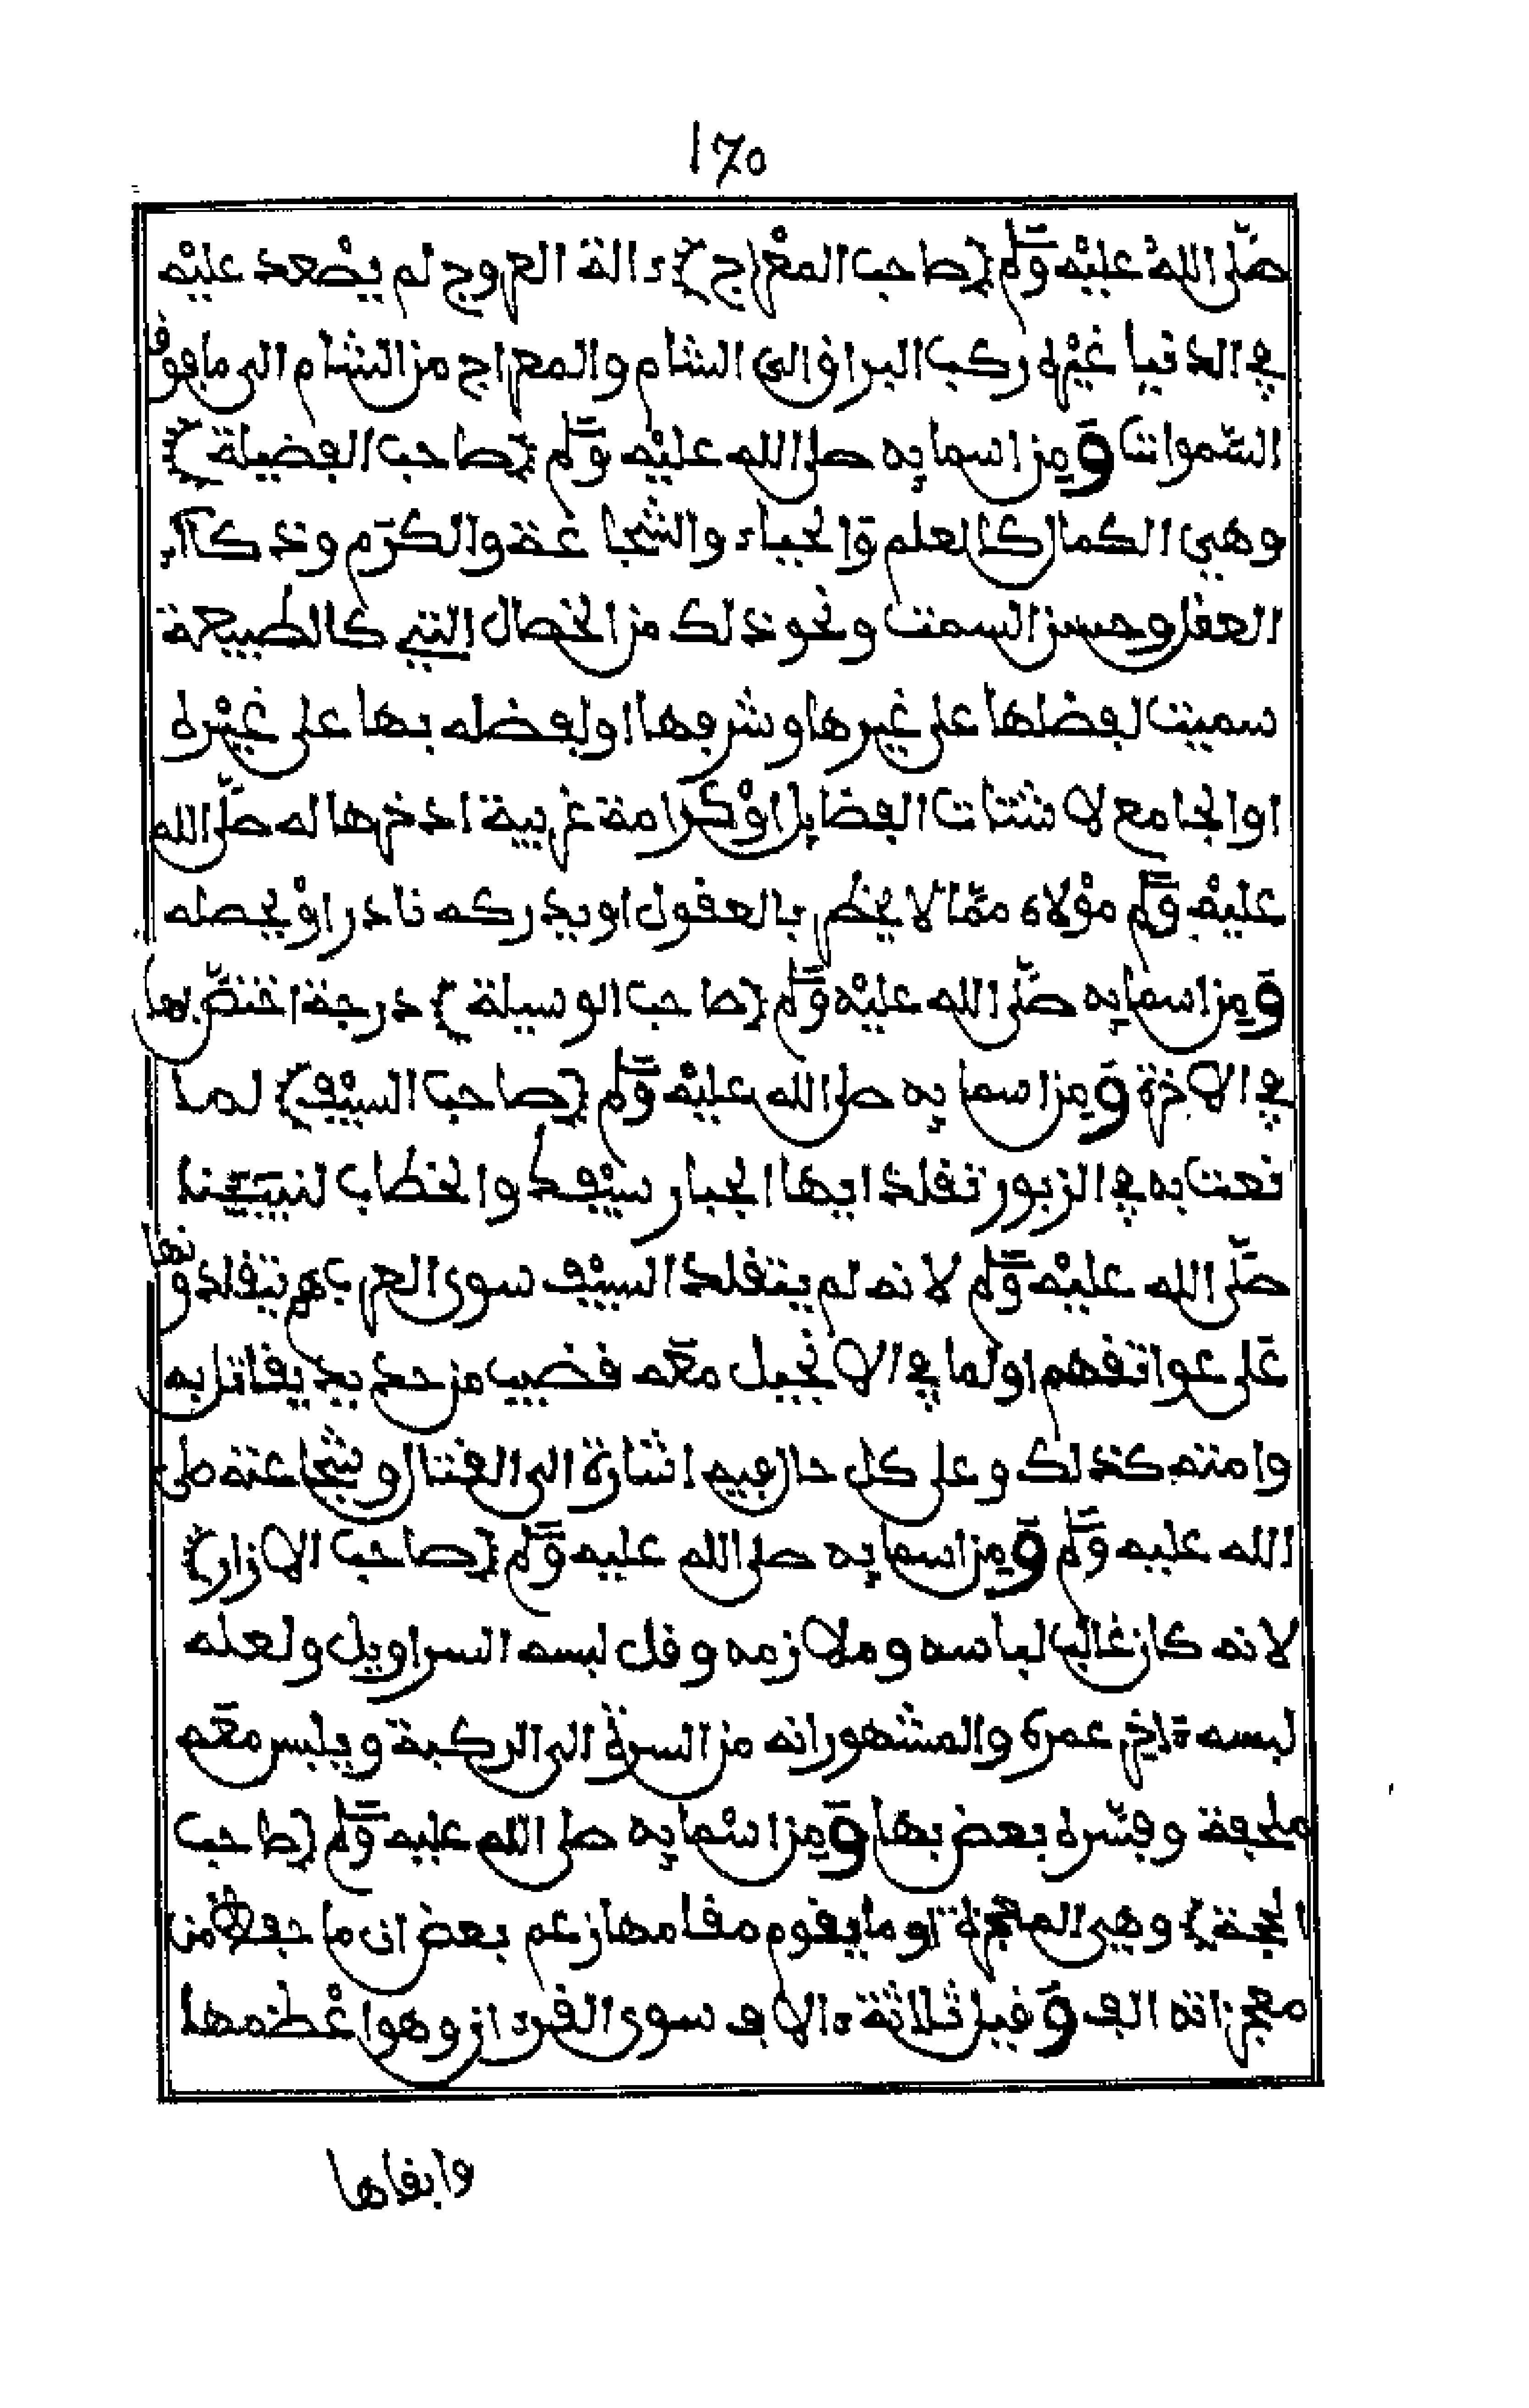 ١٦٥
صلى الله عليه وسلم {صاحب المعراج} ءالة العروج لم يصعد عليه
في الدنيا غيره ركب البراق الى الشام والمعراج من الشام الى ما فوق
السموات ومن اسمايه صلى الله عليه وسلم {صاحب الفضيلة}
وهي الكمال كالعلم والحياء والشجاعة والكرم وذكاء
العقل وحسن السمت ونحو ذلك من الخصال التي كالطبيعة
سميت لفضلها على غيرها وشرفها او لفضله بها على غيره
او الجامع لاشتات الفضايل او كرامة غريبة ادخرها له صلى الله
عليه وسلم مولاه مما لا يخطر بالعقول او يدركه نادرا ويحصله
ومن اسمايه صلى الله عليه وسلم {صاحب الوسيلة} درجة اختص بها
في الاخرة ومن اسمايه صلى الله عليه وسلم {صاحب السيف} لما
نعت به في الزبور تقلد ايها الجبار سيفك والخطاب لنبيينا
صلى الله عليه وسلم لانه لم يتقلد السيف سوى العرب هم يتقلدونها
على عواتقهم او لما في الانجيل معه قضيب من حديد يقاتل به
وامته كذلك وعلى كل حال فيه اشارة الى القتال وشجاعته صلى
الله عليه وسلم ومن اسمايه صلى الله عليه وسلم {صاحب الازار}
لانه كان غالب لباسه وملازمه وقل لبسه السراويل ولعله
لبسه ءاخر عمره والمشهور انه من السرة الى الركبة ويلبس معه
ملحفة وفسره بعض بها ومن اسمايه صلى الله عليه وسلم {صاحب
الحجة} وهي المعجزة او ما يقوم مقامها زعم بعض ان ما حفظ من
معجزاته الف وقيل ثلاثة ءالاف سوى القرءان وهو اعظمها
وابقاها